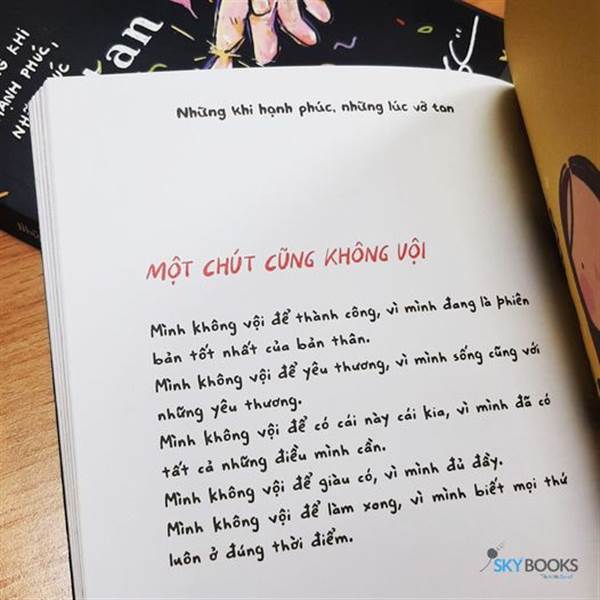 G KHI
HẠNH PHÚC,
tan
Những khi hạnh phúc, những lúc vỡ tan
MỘT CHÚT CŨNG KHÔNG VỘI
Mình không vội để thành công, vì mình đang là phiên
bản tốt nhất của bản thân.
Mình không vội để yêu thương, vì mình sống cũng với
những yêu thương.
Mình không vội để có cái này cái kia, vì mình đã có
tất cả những điều mình cần.
Mình không vội để giàu có, vì mình đủ đầy.
Mình không vội để làm xong, vì mình biết mọi thứ
luôn ở đúng thời điểm.
SKYBOOKS